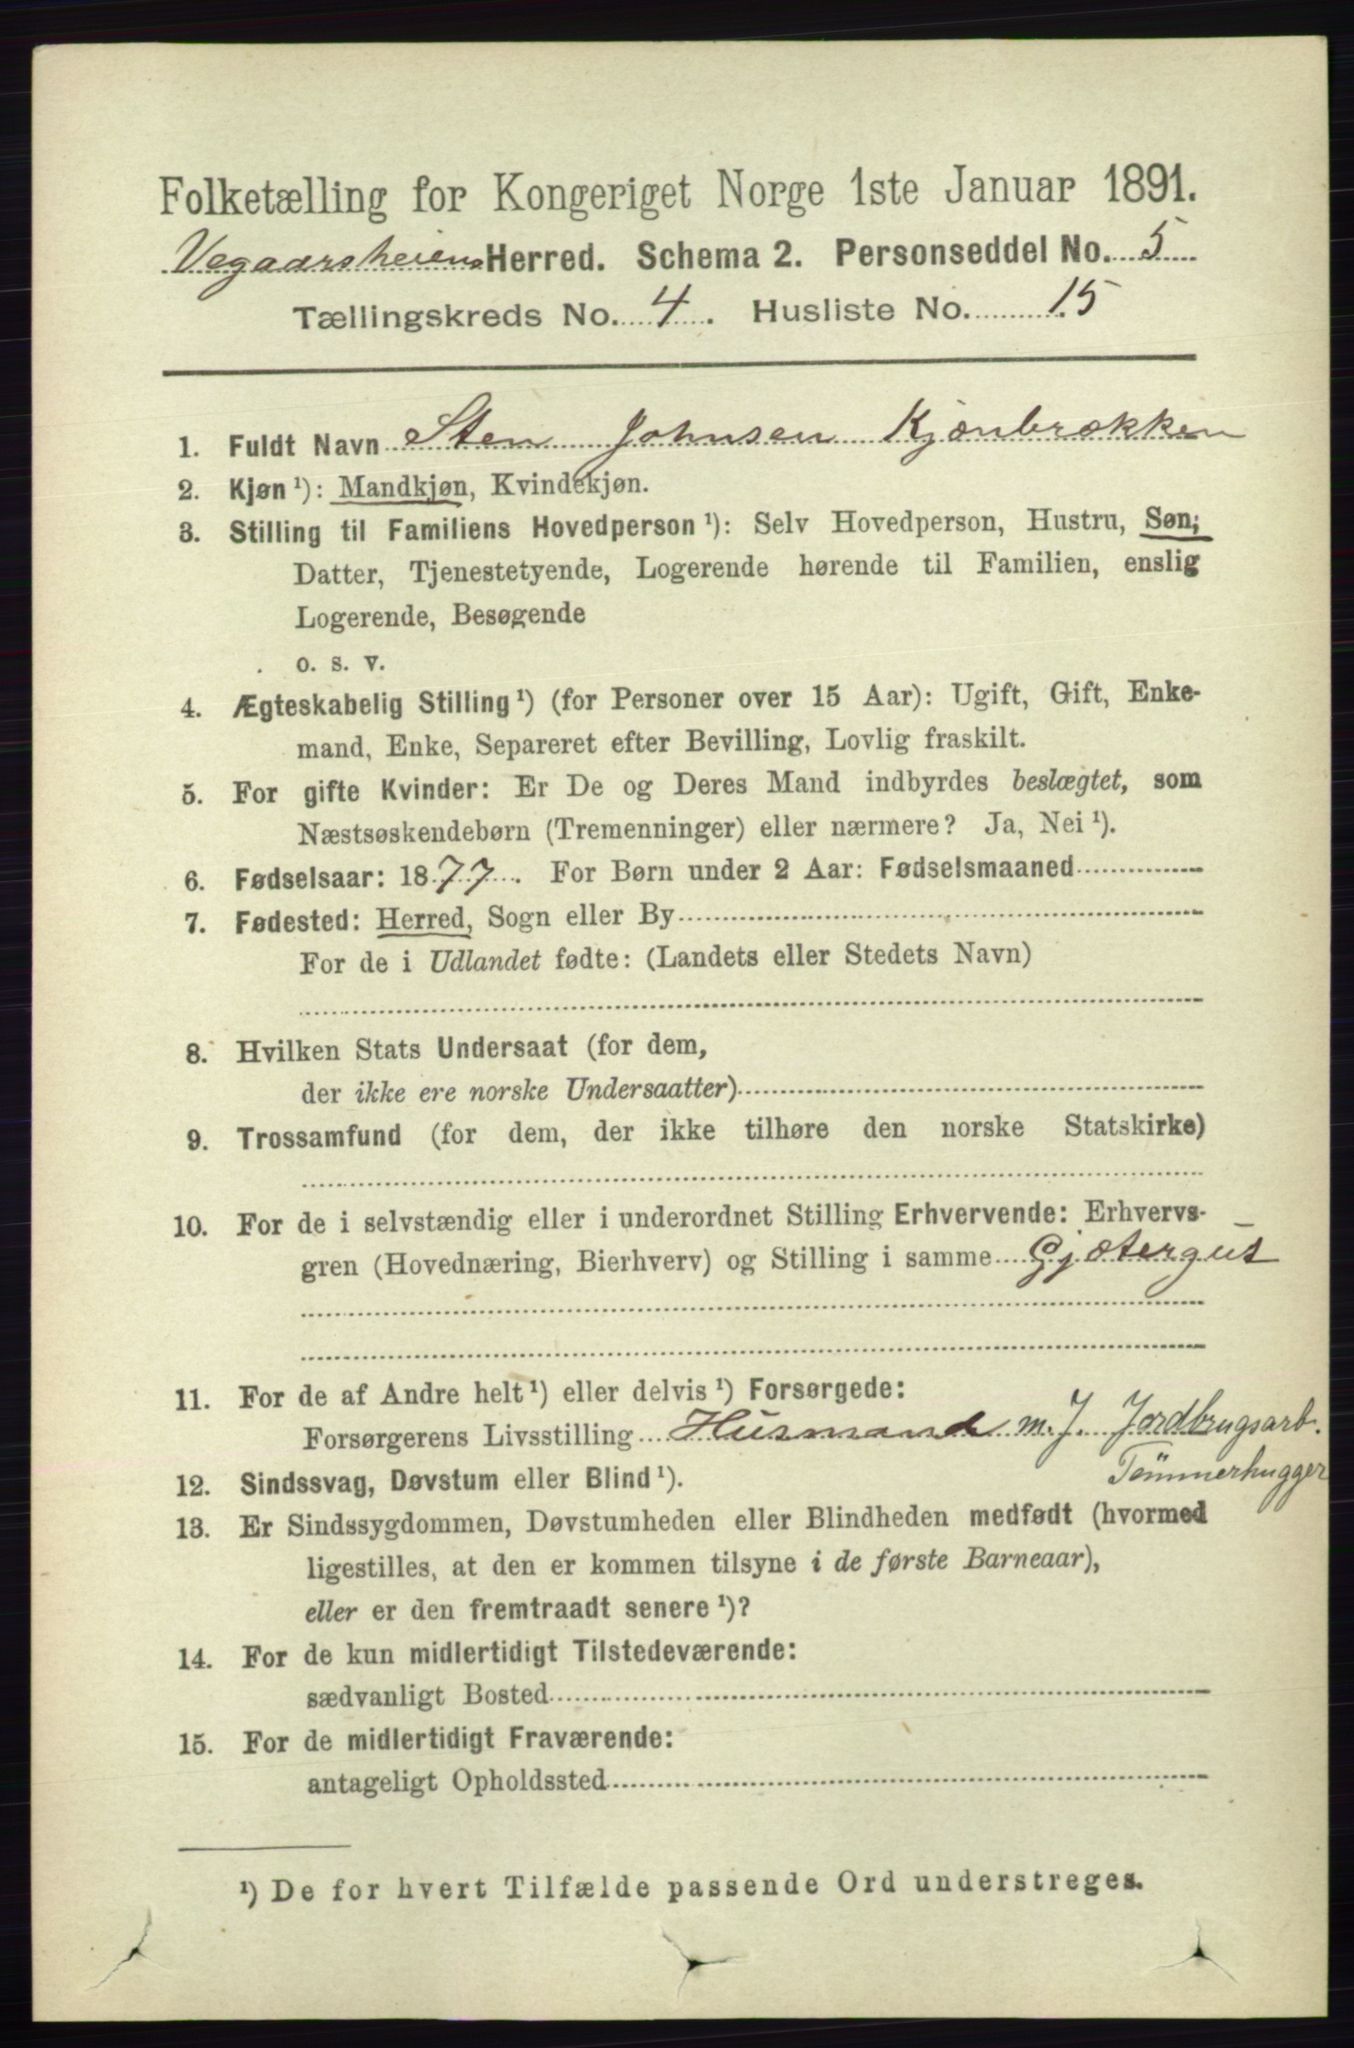 Folketælling for Kongeriget Norge 1ste Januar 1891.
Vegaarsheiens Herred. Schema 2. Personseddel No. 5
Tællingskreds No. 4. Husliste No. 15
1. Fuldt Navn Sten Johnsen Kjønbrækken
2. Kjøn ¹): Mandkjøn, Kvindekjøn.
3. Stilling til Familiens Hovedperson ¹): Selv Hovedperson, Hustru, Søn,
Datter, Tjenestetyende, Logerende hørende til Familien, enslig
Logerende, Besøgende
o. s. v.
4. Ægteskabelig Stilling ¹) (for Personer over 15 Aar): Ugift, Gift, Enke-
mand, Enke, Separeret efter Bevilling, Lovlig fraskilt.
5. For gifte Kvinder: Er De og Deres Mand indbyrdes beslægtet, som
Næstsøskendebørn (Tremenninger) eller nærmere? Ja, Nei ¹).
6. Fødselsaar: 1877. For Børn under 2 Aar: Fødselsmaaned
7. Fødested: Herred, Sogn eller By
For de i Udlandet fødte: (Landets eller Stedets Navn)
8. Hvilken Stats Undersaat (for dem,
der ikke ere norske Undersaatter)
9. Trossamfund (for dem, der ikke tilhøre den norske Statskirke)
10. For de i selvstændig eller i underordnet Stilling Erhvervende: Erhvervs-
gren (Hovednæring, Bierhverv) og Stilling i samme Gjætergut
11. For de af Andre helt ¹) eller delvis ¹) Forsørgede:
Forsørgerens Livsstilling Husmand m. J. Jordbrugsarb.
Tømmerhugger
12. Sindssvag, Døvstum eller Blind ¹).
13. Er Sindssygdommen, Døvstumheden eller Blindheden medfødt (hvormed
ligestilles, at den er kommen tilsyne i de første Barneaar),
eller er den fremtraadt senere ¹)?
14. For de kun midlertidigt Tilstedeværende:
sædvanligt Bosted
15. For de midlertidigt Fraværende:
antageligt Opholdssted
¹) De for hvert Tilfælde passende Ord understreges.